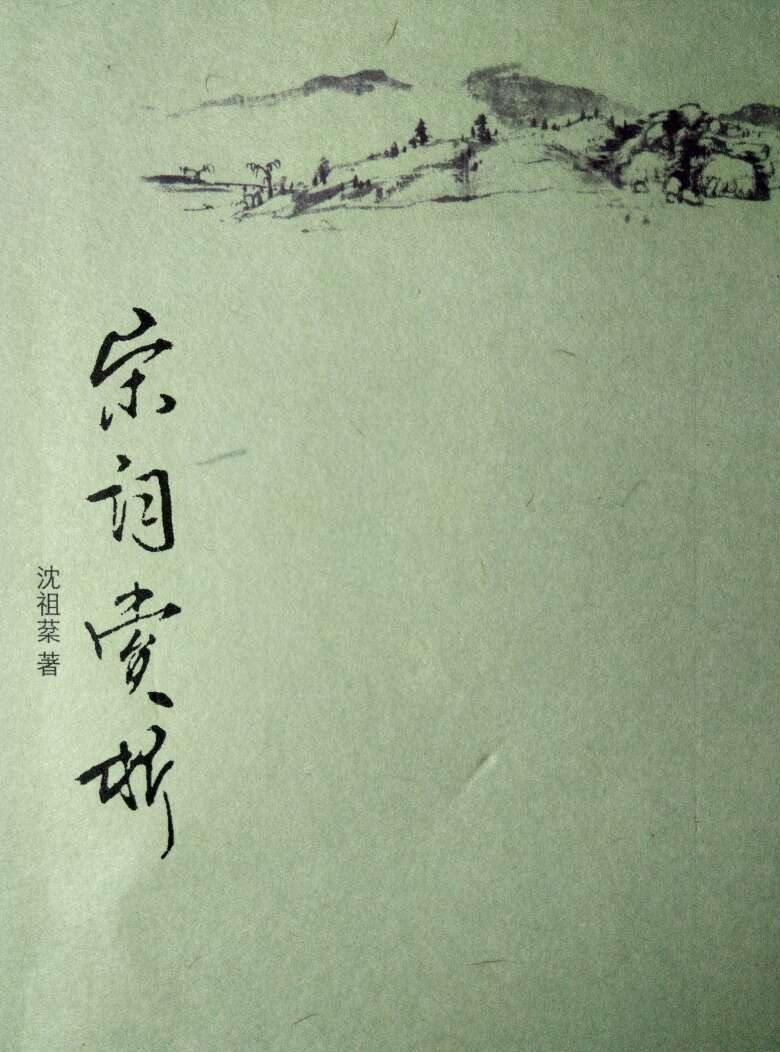 宋词赏析
沈祖棻 著